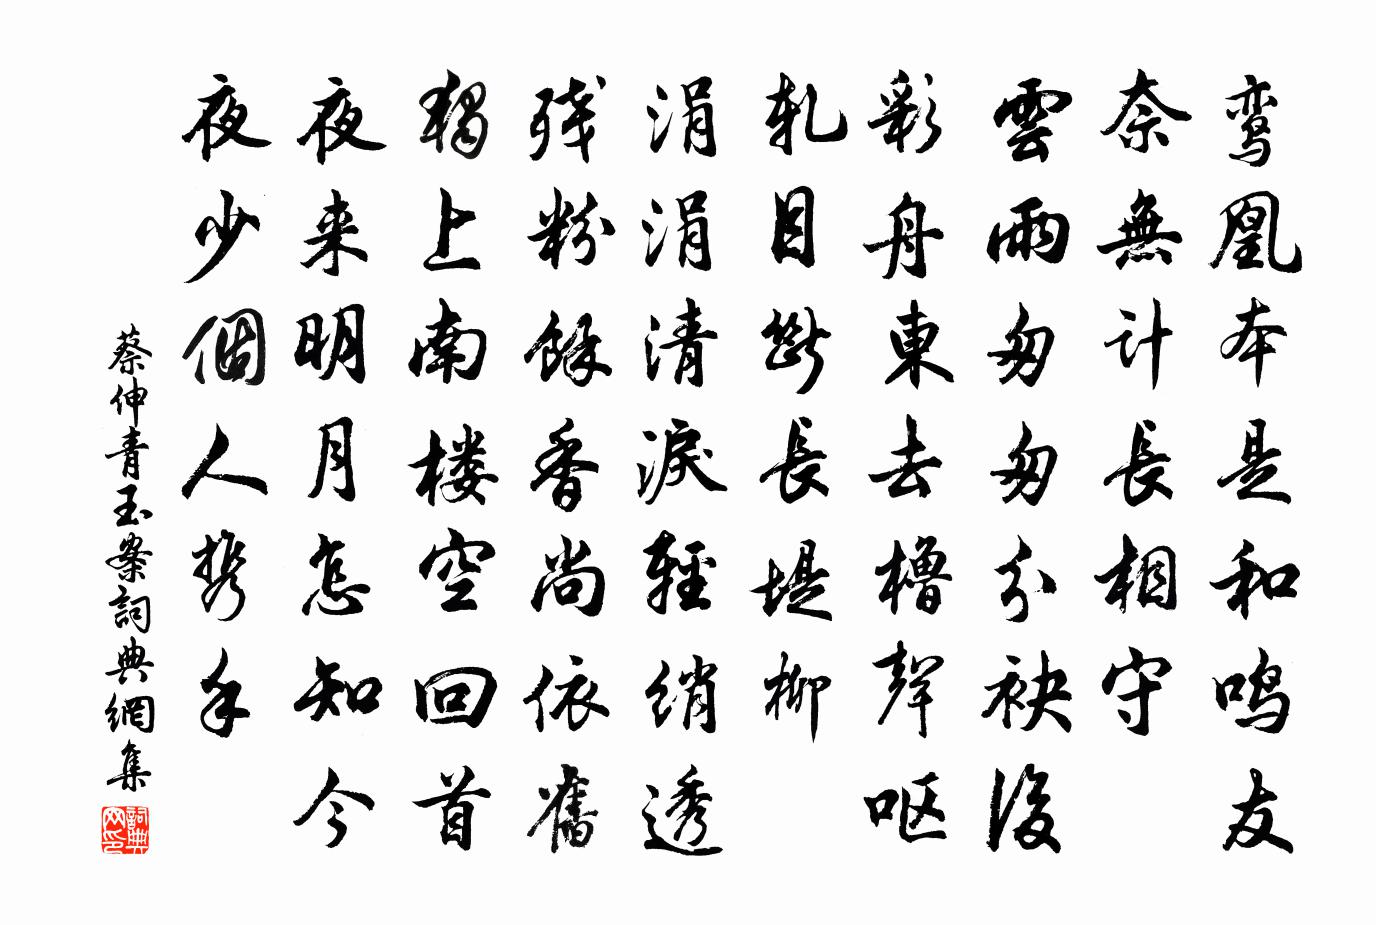 鸾凰本是和鸣友
奈無计長相守
雲雨匆匆分袂後
彩舟東去櫓聲呕
轧目斷長堤柳
涓涓清淚輕绡透
残粉餘香尚依舊
獨上南楼空回首
夜来明月怎知今
夜少個人携手
蔡伸青玉案詞典網集
詞典网印